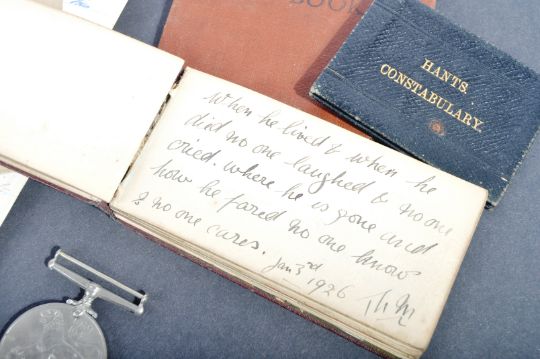 BOOK
HANTS.
CONSTABULARY.
When he lived & when he
died no one laughed & no one
cried. where he is gone and
how he fared no one knows
& no one cares.
Jan 3rd
1926